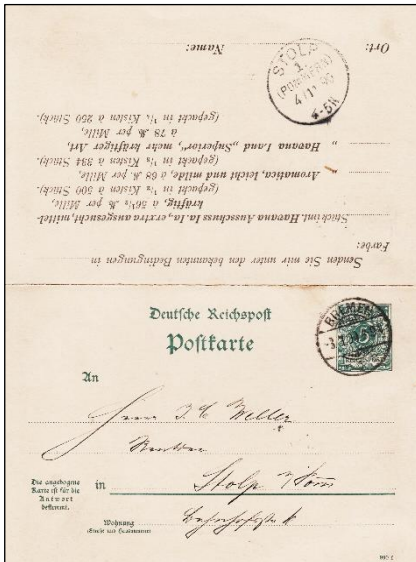 Senden Sie mir unter den bekannten Bedingungen in
Farbe:
Stück imt. Havana Ausschuss Ia, extra ausgesucht, mittel-
kräftig, à 56½ per Mille,
(gepackt in ¹/₁ Kisten à 500 Stück).
„ Aromatica, leicht und milde, à 68 ℳ per Mille,
(gepackt in ¹/₁ Kisten à 334 Stück).
„ Havana Land „Superior“, mehr kräftiger Art,
à 78 ℳ per Mille,
(gepackt in ¹/₁ Kisten à 250 Stück).
Ort: Name:
STOLP
1
(POMMERN)
4-5N
Deutsche Reichspost
Postkarte
BREMEN
An
Herrn J. C. Weller
Rentier
Die angebogene
Karte ist für die
Antwort
bestimmt.
in Stolp i/Pom
Wohnung
(Straße und Hausnummer)
Bahnhofstr